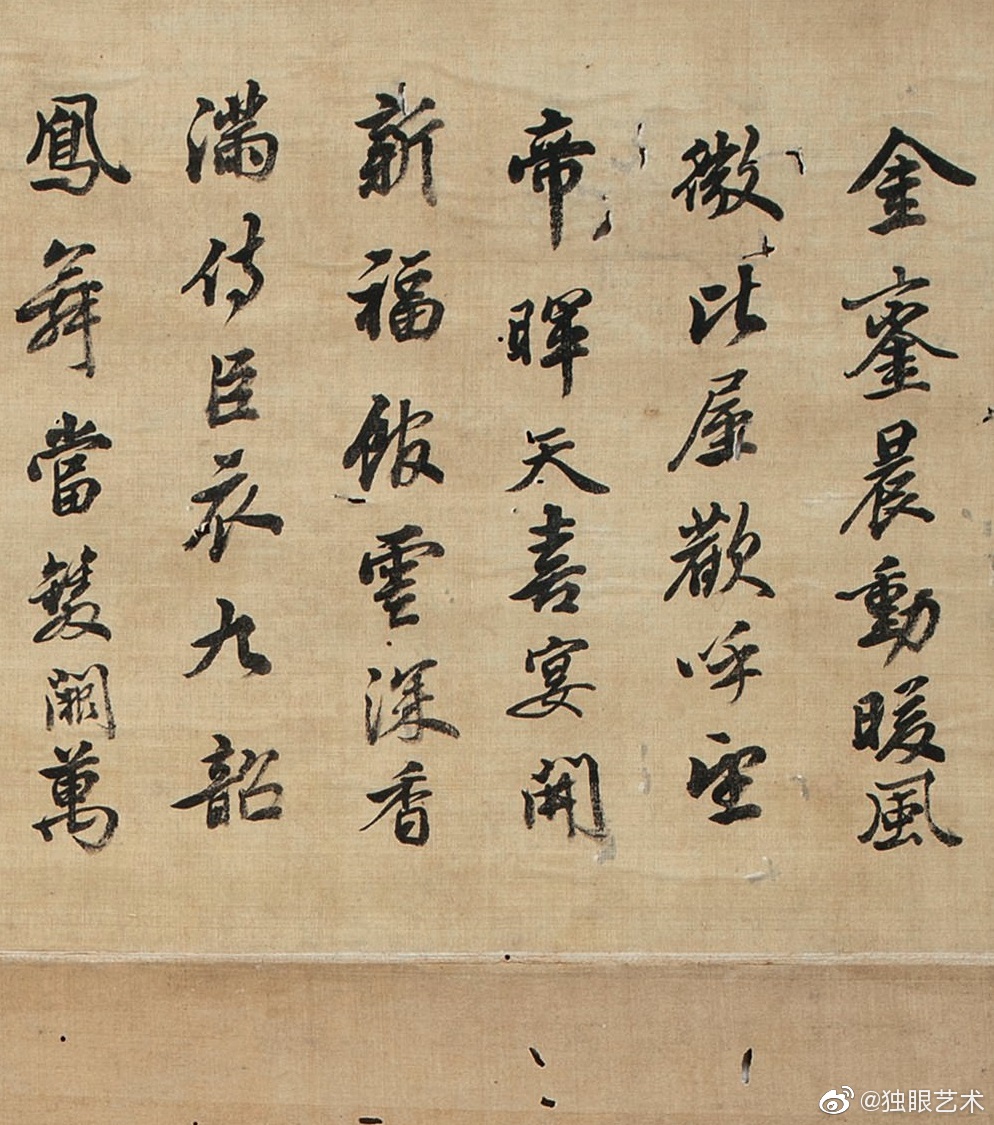 金鑾晨動暖風
微比屋歡呼望
帝暉天喜宴開
新福飲雲深香
滿侍臣衣九韶
鳳舞當雙闕萬
@独眼艺术